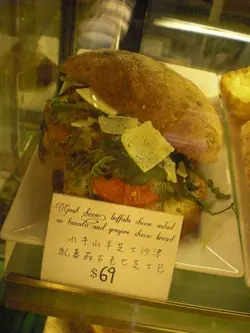 Goat cheese, buffalo cheese salad
on tomato and gruyere cheese bread
水牛山羊芝士沙津
配蕃茄古老也芝士包
$69